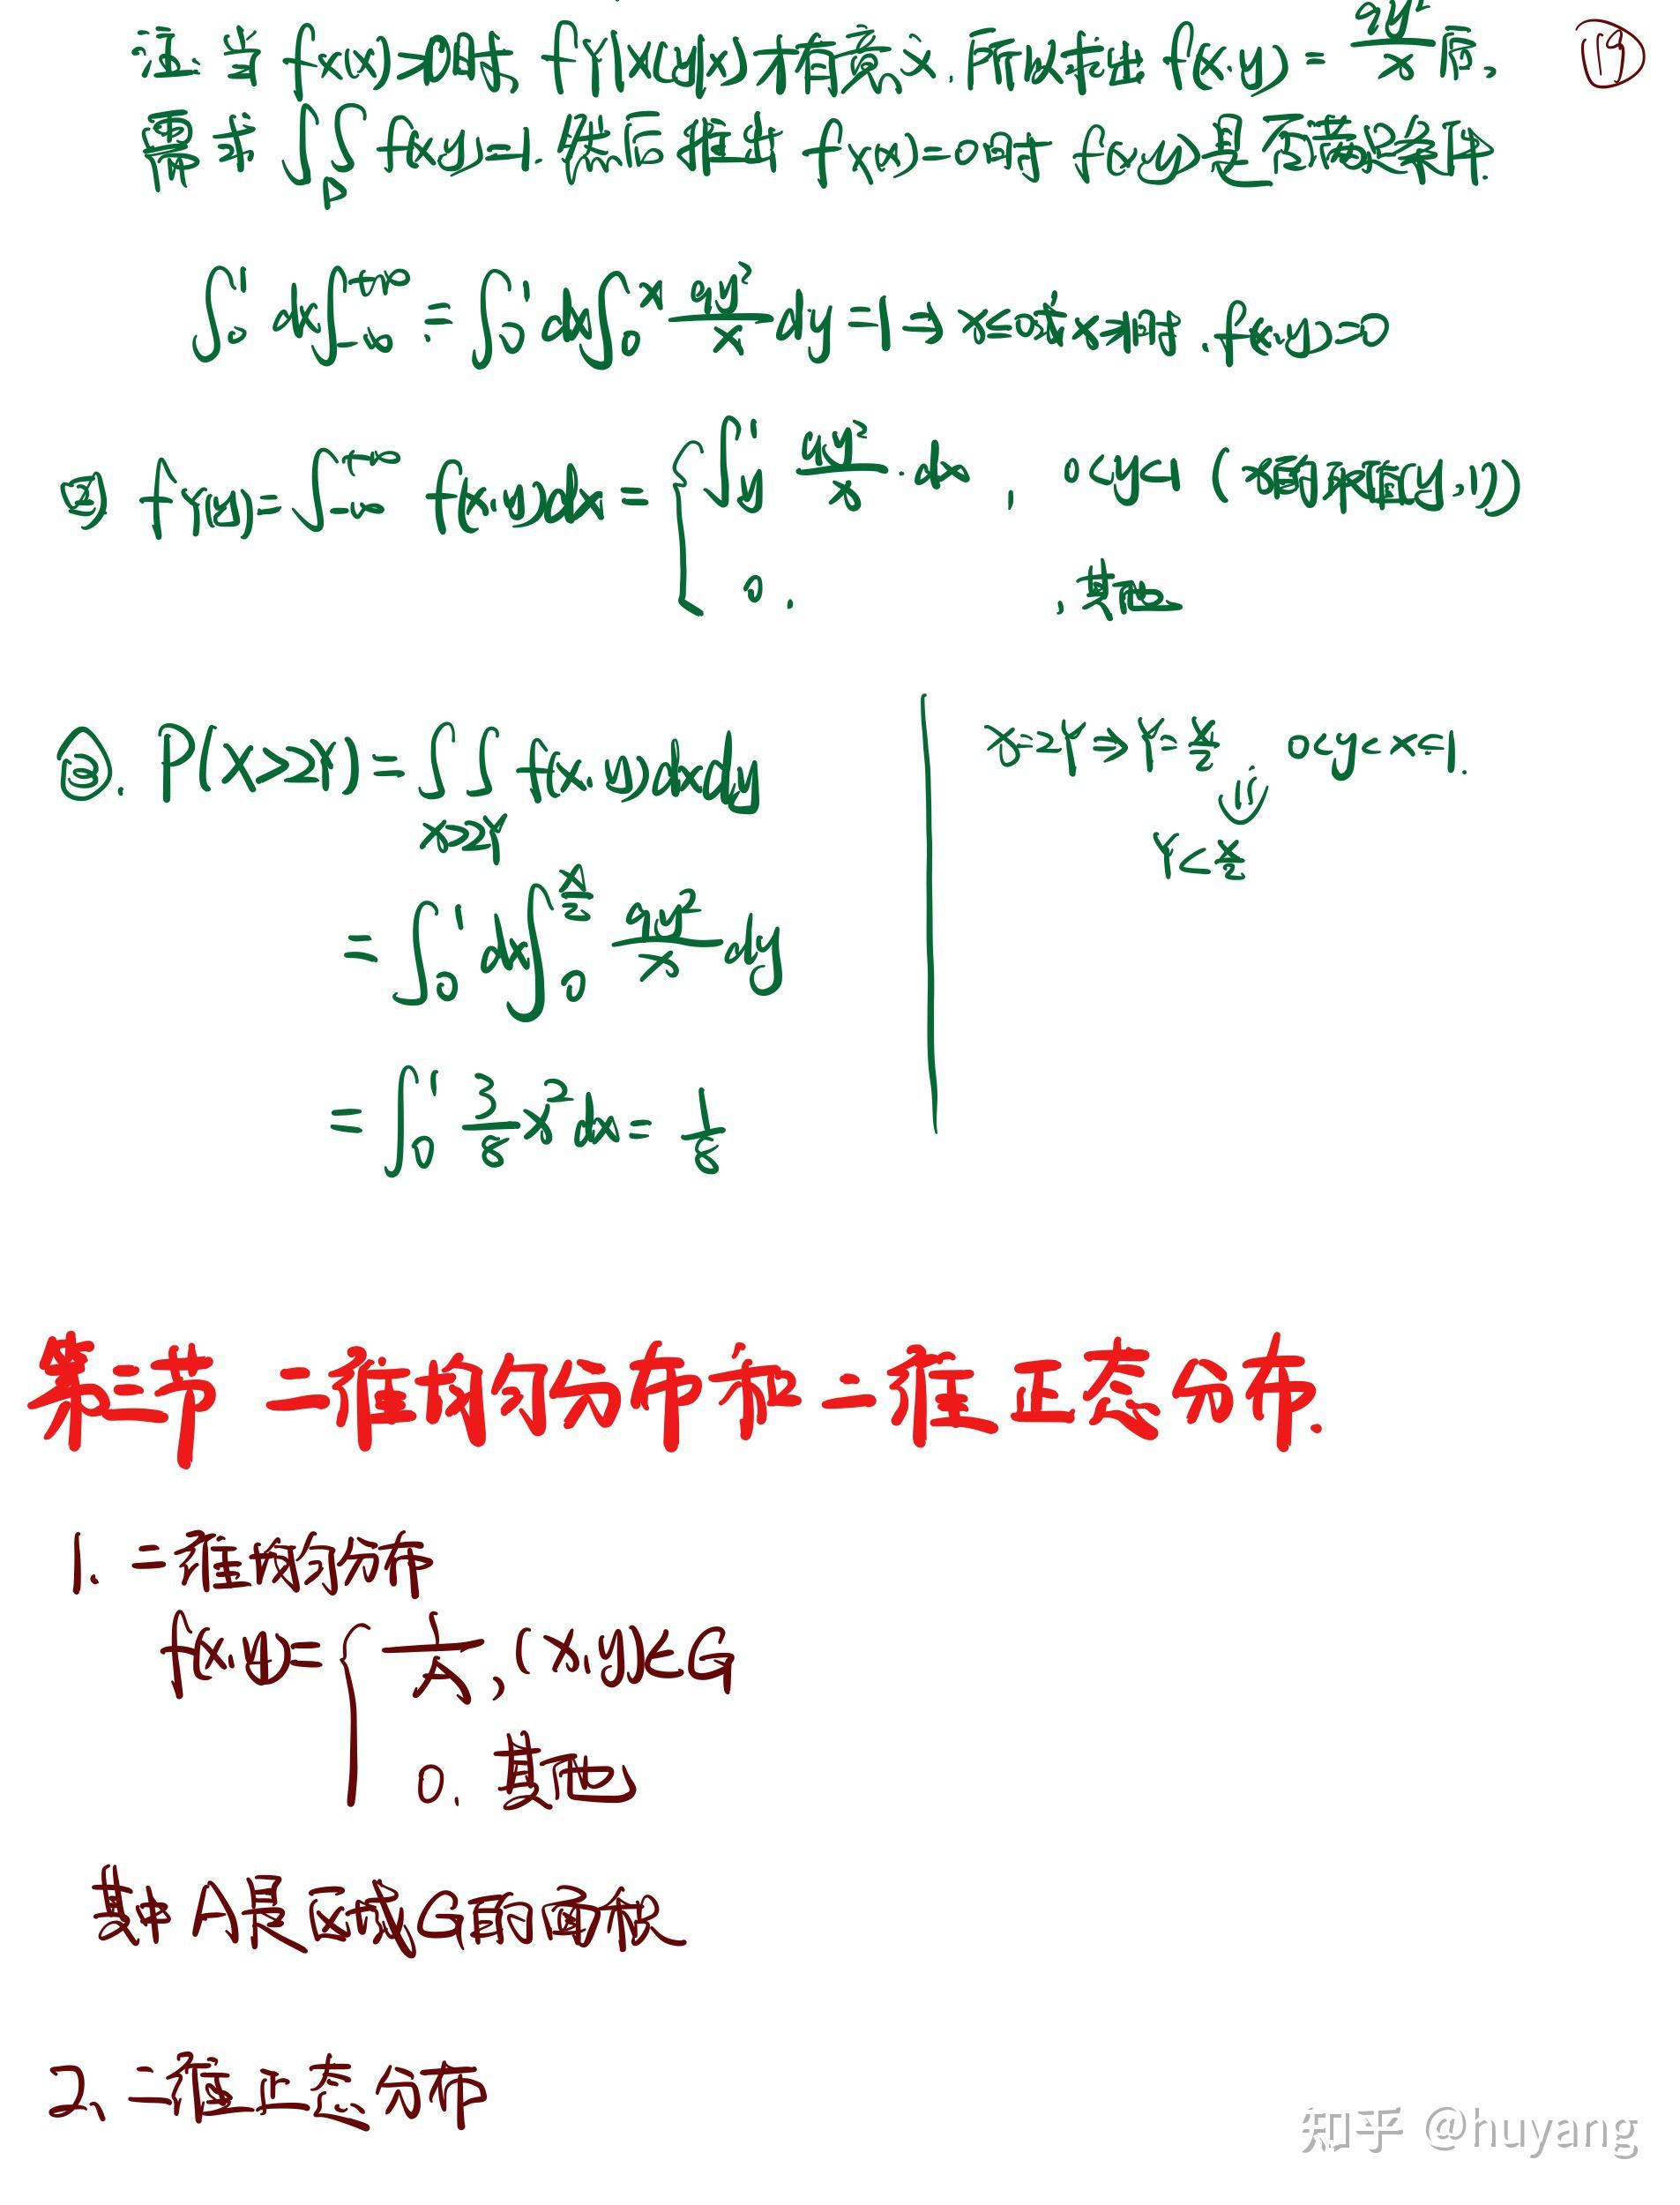 注. 当 fx(x)>0时, fY|X(y|x)才有意义. 所以求出 f(x.y) = 9y²/x 后, ⑲
需求 ∫∫_D f(x,y)=1. 然后推出 fx(x)=0时 f(x,y)是否满足条件.
∫₀¹ dx∫₋∞⁺∞ = ∫₀¹ dx∫₀ˣ 9y²/x dy =1 ⇒ x≤0或x≥1时. f(x.y)=0
② fY(y)=∫₋∞⁺∞ f(x.y)dx = { ∫_y¹ 9y²/x · dx , 0<y<1 (x的取值(y,1))
0. , 其他
③. P(X>2Y) = ∫∫_{x>2y} f(x.y)dxdy
= ∫₀¹ dx∫₀^{x/2} 9y²/x dy
= ∫₀¹ 3/8 x² dx = 1/8
X=2Y ⇒ Y=X/2 0<y<x<1.
Y<X/2
第三节 二维均匀分布和二维正态分布.
1. 二维均匀分布
f(x.y)= { 1/A , (x,y)∈G
0. 其他
其中 A是区域G的面积
2、二维正态分布
知乎 @huyang